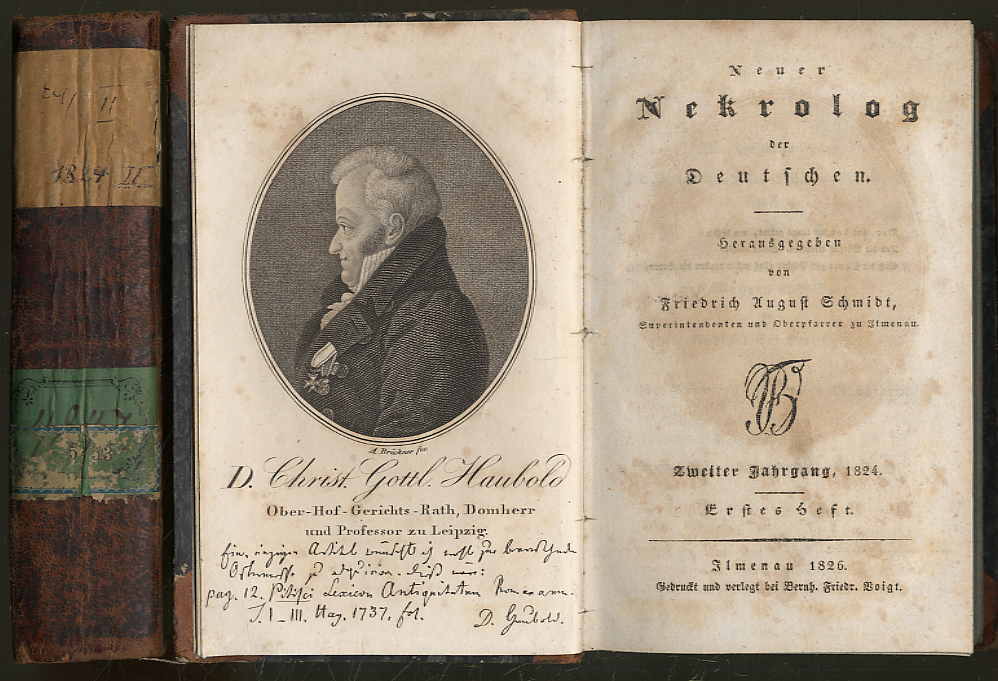 II
1824 II
A Brückner fec
D. Christ. Gottl. Haubold
Ober-Hof-Gerichts-Rath, Domherr
und Professor zu Leipzig.
Artikel wünscht ich
pag. 12. Pitisci Lexicon Antiquitatum Romanarum.
T. I–III. Hag. 1737. fol.
D. Haubold.
Neuer
Nekrolog
der
Deutschen.
Herausgegeben
von
Friedrich August Schmidt,
Superintendenten und Oberpfarrer zu Ilmenau.
Zweiter Jahrgang, 1824.
Erstes Heft.
Ilmenau 1826.
Gedruckt und verlegt bei Bernh. Friedr. Voigt.